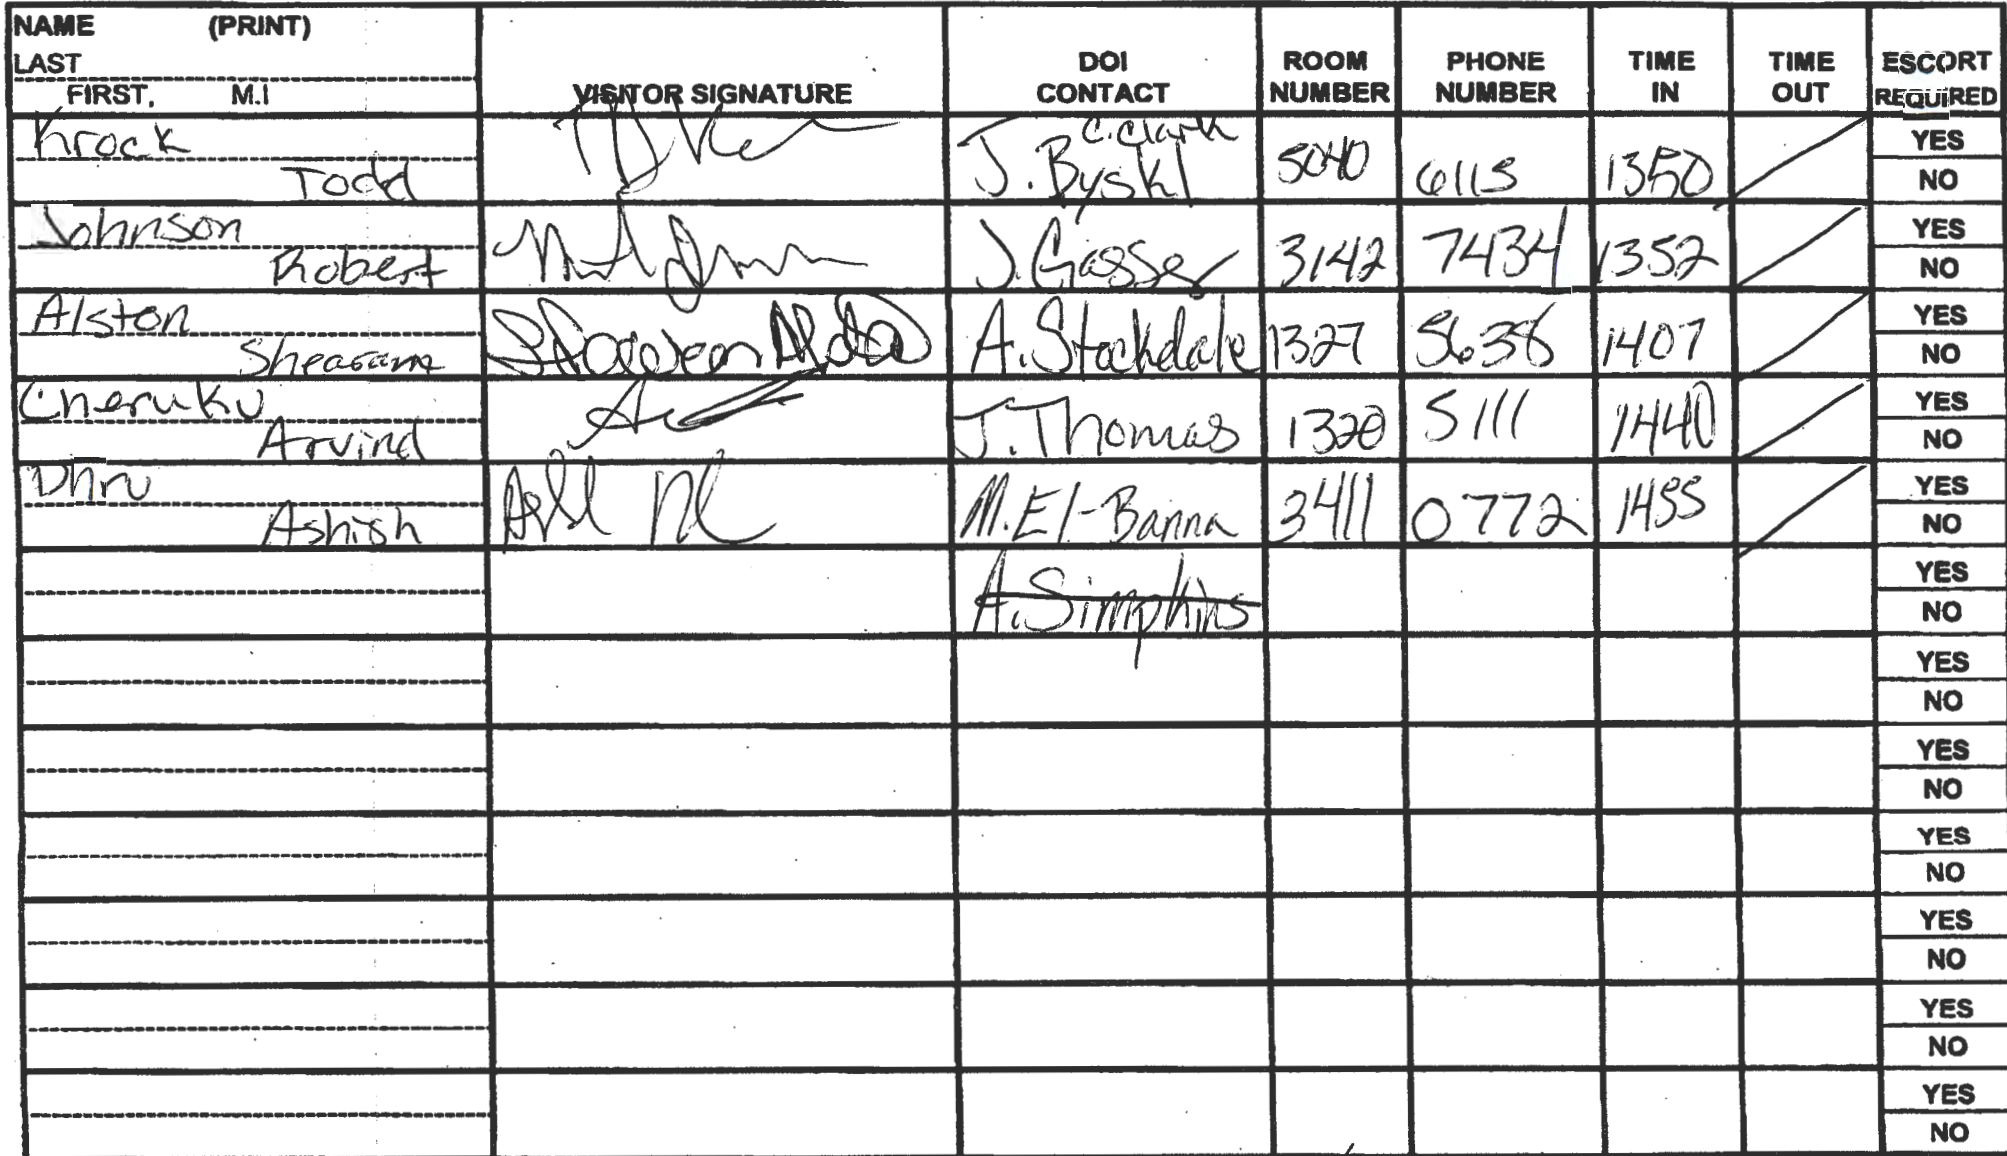 NAME (PRINT)
LAST
FIRST, M.I
VISITOR SIGNATURE
DOI CONTACT
ROOM NUMBER
PHONE NUMBER
TIME IN
TIME OUT
ESCORT REQUIRED
Krock
Todd
C. Clark
J. Byskl
5040 6115 1350
YES
NO
Johnson
Robert
J. Gasser 3142 7434 1352
YES
NO
Alston
A. Stockdale 1327 5638 1407
YES
NO
Cheruku
Arvind
J. Thomas 1320 5111 1440
YES
NO
Dhru
Ashish
M. El-Banna 3411 0772 1455
YES
NO
A. Simpkins
YES
NO
YES
NO
YES
NO
YES
NO
YES
NO
YES
NO
YES
NO